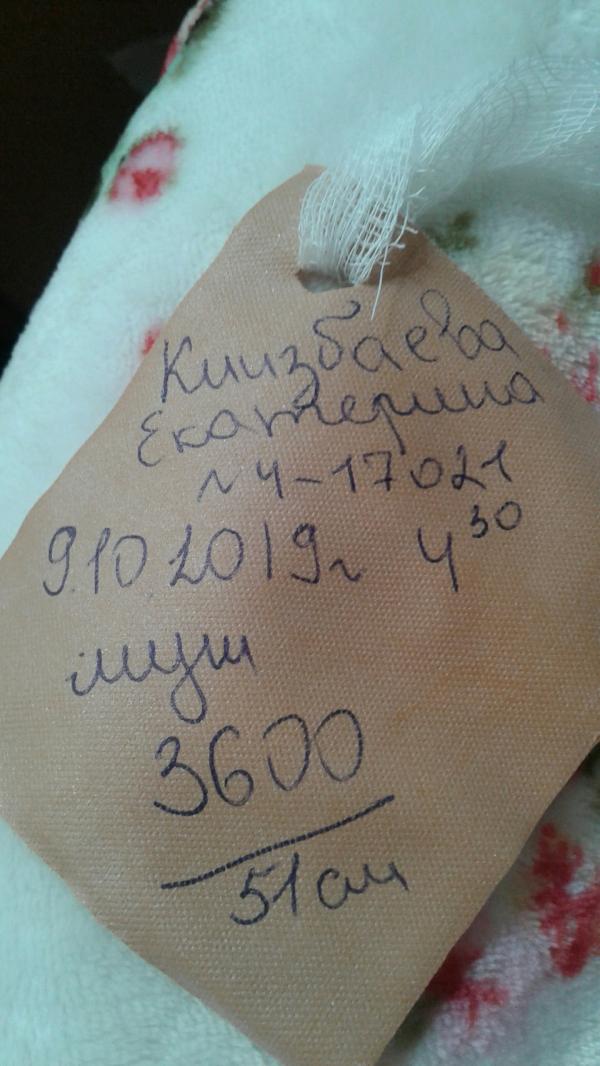 Киизбаева
Екатерина
N 4-17021
9.10.2019г 4³⁰
муж
3600
51 см